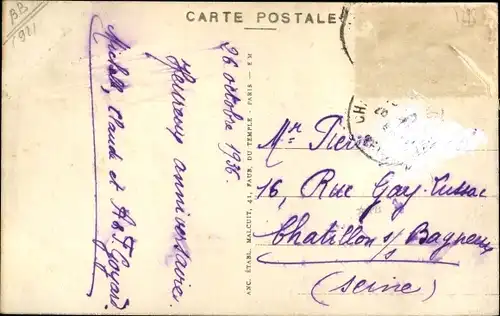 BB
(92)
CARTE POSTALE
26 octobre 1936.
Heureux anniversaire.
Michel, Claude et
Goyard.
ANC. ÉTABL. MALCUIT, 41, FAUB. DU TEMPLE, PARIS — EM
CHA
Mr
16, Rue Gay-Lussac
Chatillon s/s Bagneux
(Seine)